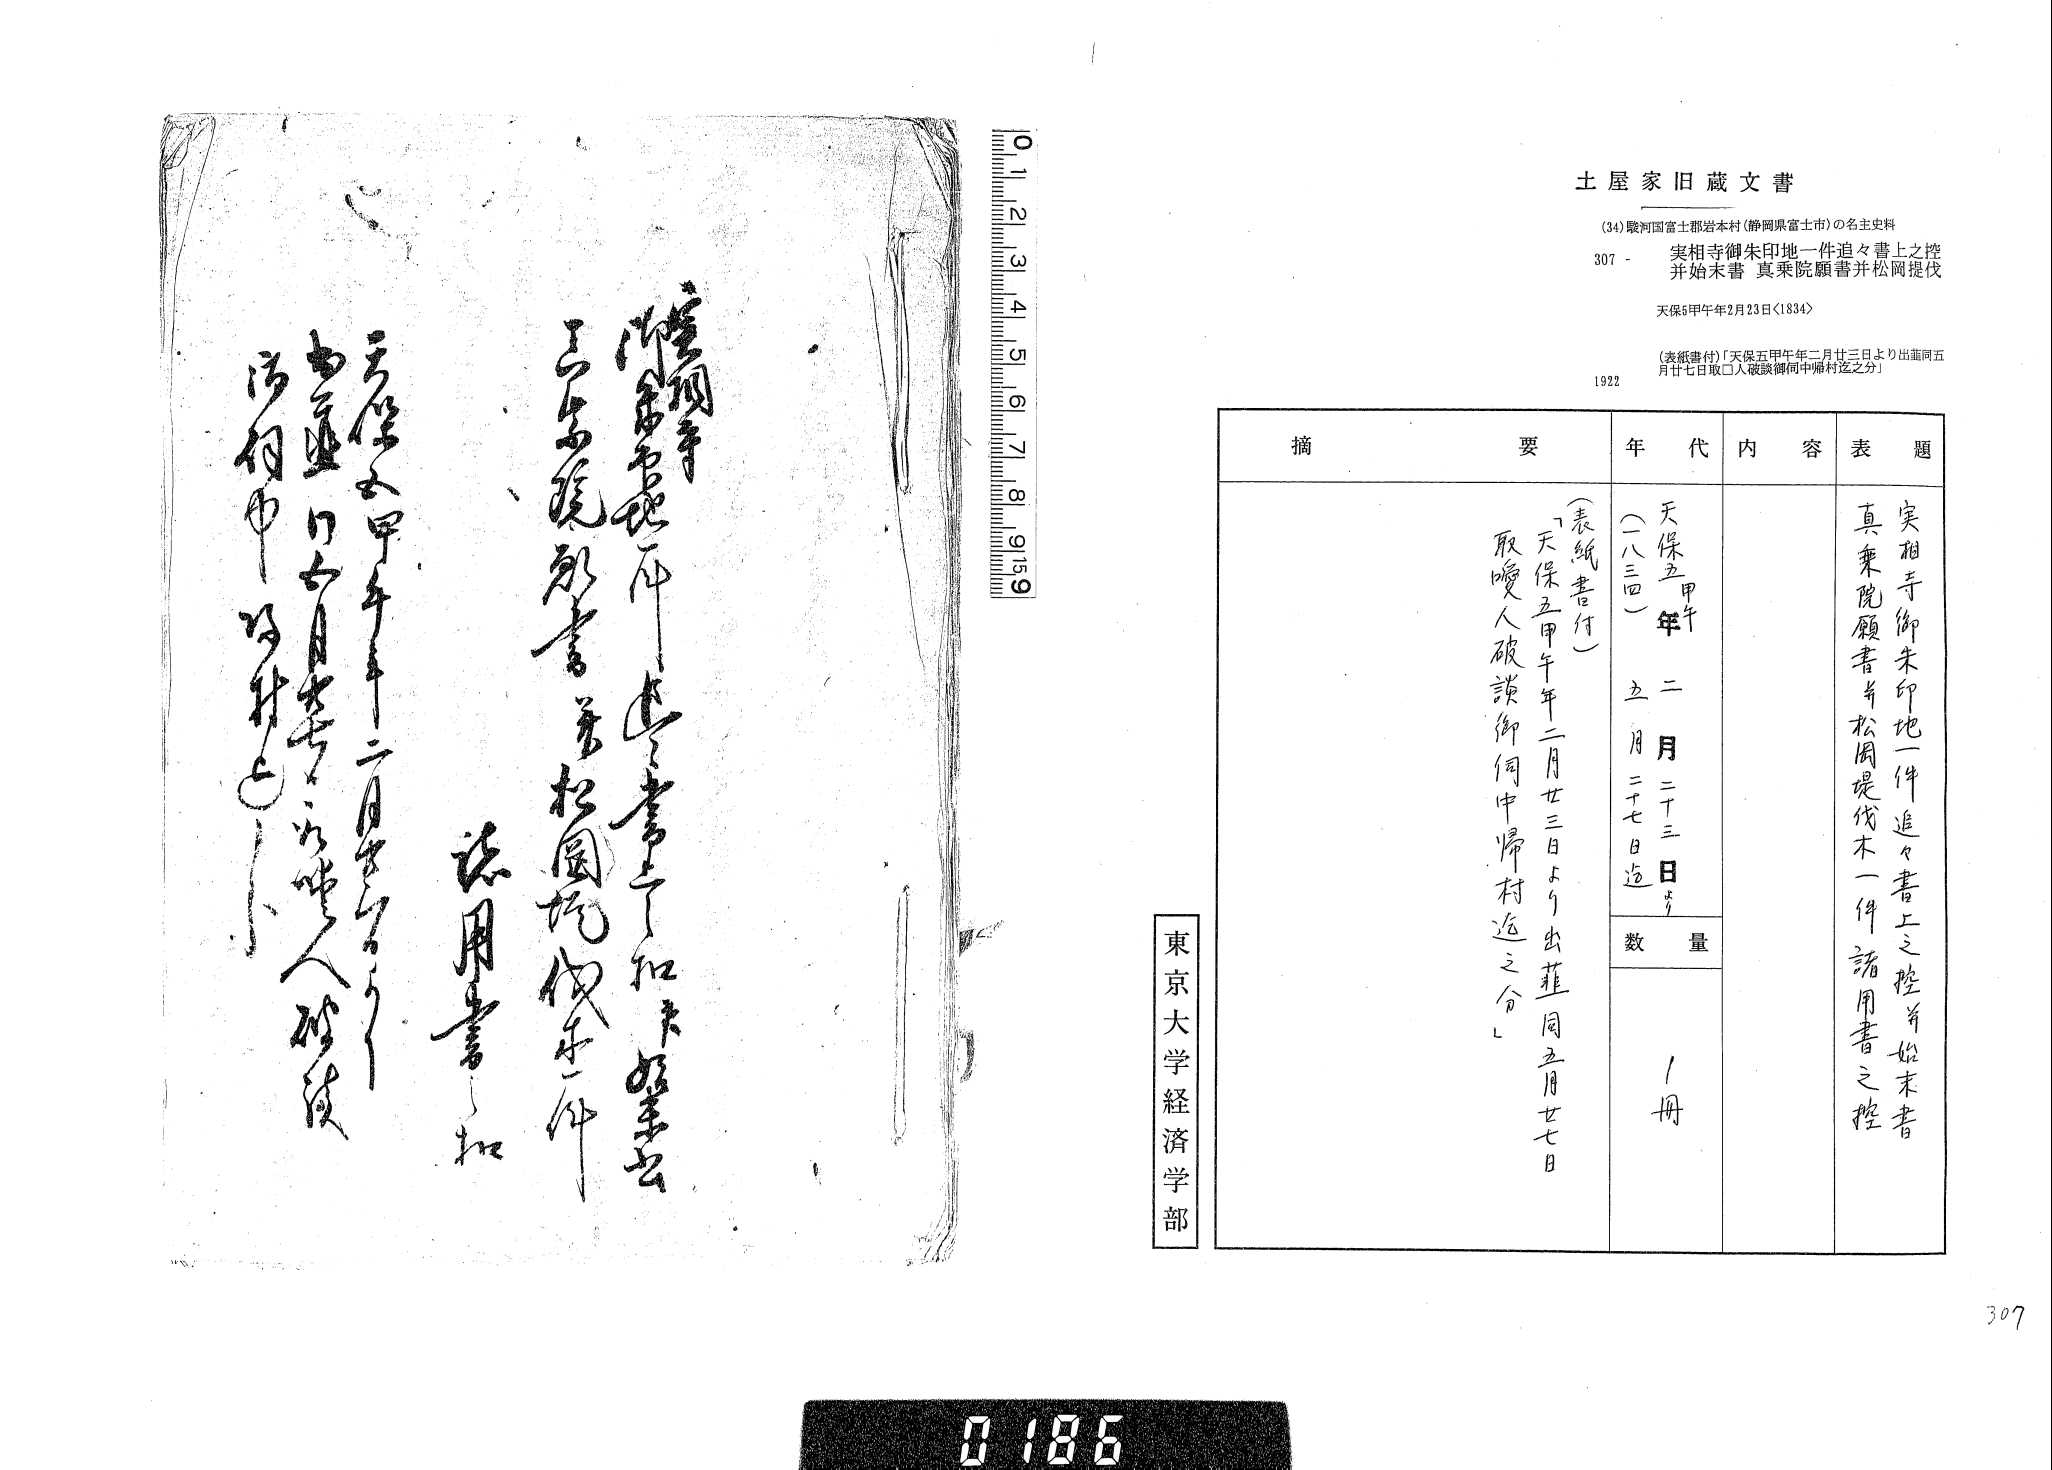 土屋家旧蔵文書
(34)駿河国富士郡岩本村(静岡県富士市)の名主史料
307 - 実相寺御朱印地一件追々書上之控
并始末書 真乗院願書并松岡提伐
天保5甲午年2月23日<1834>
(表紙書付)「天保五甲午年二月廿三日より出韮同五
月廿七日取□人破談御伺中帰村迄之分」
1922
表題
実相寺御朱印地一件追々書上之控并始末書
真乗院願書并松岡堤伐木一件諸用書之控
内容
年代
天保五甲午年二月二十三日より
(一八三四) 五月二十七日迄
数量
1冊
摘要
(表紙書付)
「天保五甲午年二月廿三日より出韮同五月廿七日
取噯人破談御伺中帰村迄之分」
東京大学経済学部
307
0 1 2 3 4 5 6 7 8 9 15 9
実相寺
御朱印地一件追々書上之扣并始末書
真乗院願書并松岡堤伐木一件
諸用書之扣
天保五甲午年二月廿三日より
出韮同五月廿七日取噯人破談
御伺中帰村迄之分
0186